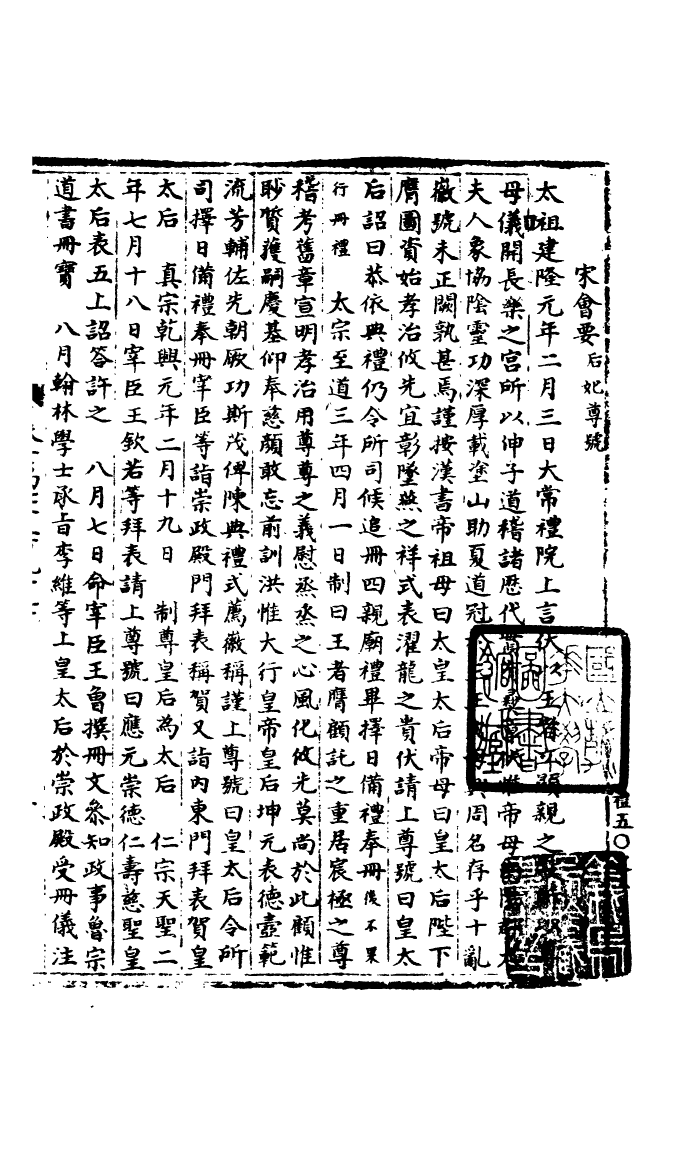 宋會要 后妃尊號
太祖建隆元年二月三日大常禮院上言伏以王者
顯親之
母儀開長樂之宮所以伸子道稽諸歷代
帝母
夫人象協陰靈功深厚載塗山助夏道冠
周名存乎十亂
徽號未正闕孰甚焉謹按漢書帝祖母曰太皇太后帝母曰皇太后陛下
膺圖資始孝治攸先宜彰墜燕之祥式表濯龍之貴伏請上尊號曰皇太
后詔曰恭依典禮仍令所司候追冊四親廟禮畢擇日備禮奉冊 後不果
行冊禮 太宗至道三年四月一日制曰王者膺顧託之重居宸極之尊
稽考舊章宣明孝治用尊尊之義慰烝烝之心風化攸先莫尚於此顧惟
眇質獲嗣慶基仰奉慈顏敢忘前訓洪惟大行皇帝皇后坤元表德壼範
流芳輔佐先朝厥功斯茂俾陳典禮式薦徽稱謹上尊號曰皇太后令所
司擇日備禮奉冊宰臣等詣崇政殿門拜表稱賀又詣內東門拜表賀皇
太后 真宗乾興元年二月十九日 制尊皇后為太后 仁宗天聖二
年七月十八日宰臣王欽若等拜表請上尊號曰應元崇德仁壽慈聖皇
太后表五上詔答許之 八月七日命宰臣王曾撰冊文參知政事魯宗
道書冊寶 八月翰林學士承旨李維等上皇太后於崇政殿受冊儀注
禮五〇